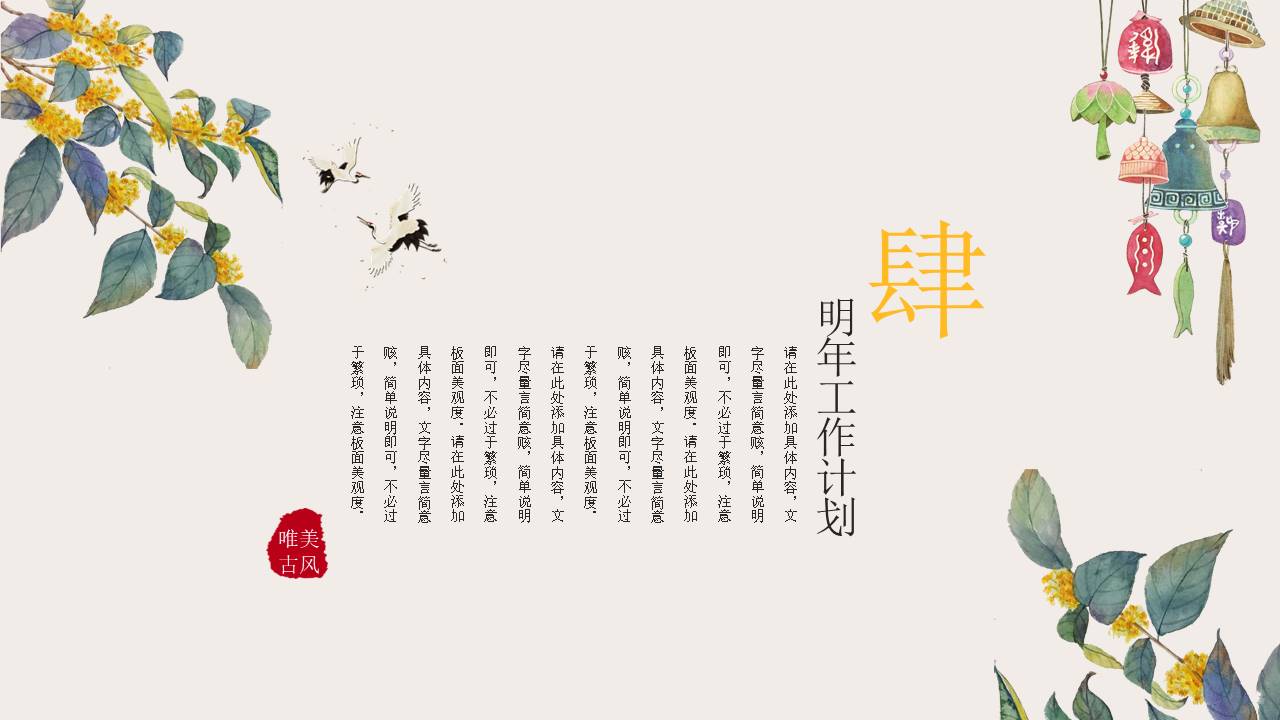 肆
明年工作计划
请在此处添加具体内容，文
字尽量言简意赅，简单说明
即可，不必过于繁琐，注意
板面美观度。请在此处添加
具体内容，文字尽量言简意
赅，简单说明即可，不必过
于繁琐，注意板面美观度。
请在此处添加具体内容，文
字尽量言简意赅，简单说明
即可，不必过于繁琐，注意
板面美观度。请在此处添加
具体内容，文字尽量言简意
赅，简单说明即可，不必过
于繁琐，注意板面美观度。
唯美
古风